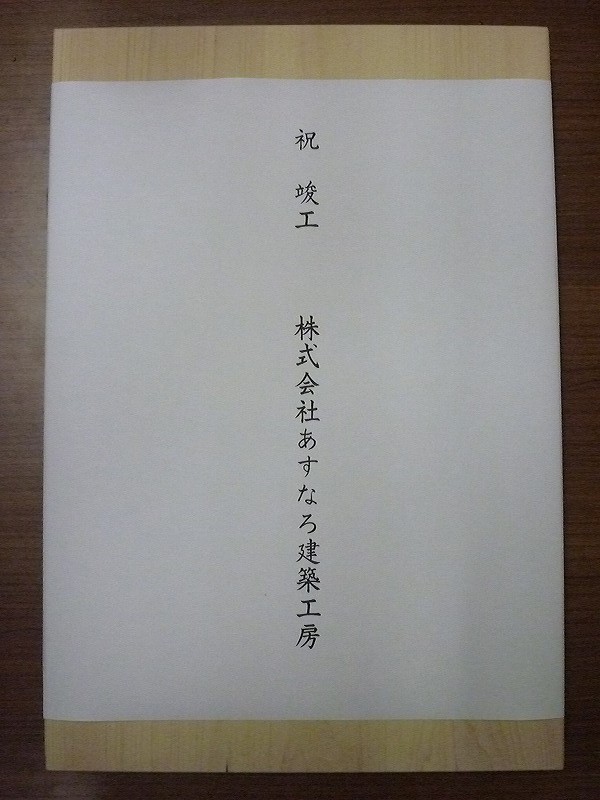 祝 竣工 株式会社あすなろ建築工房